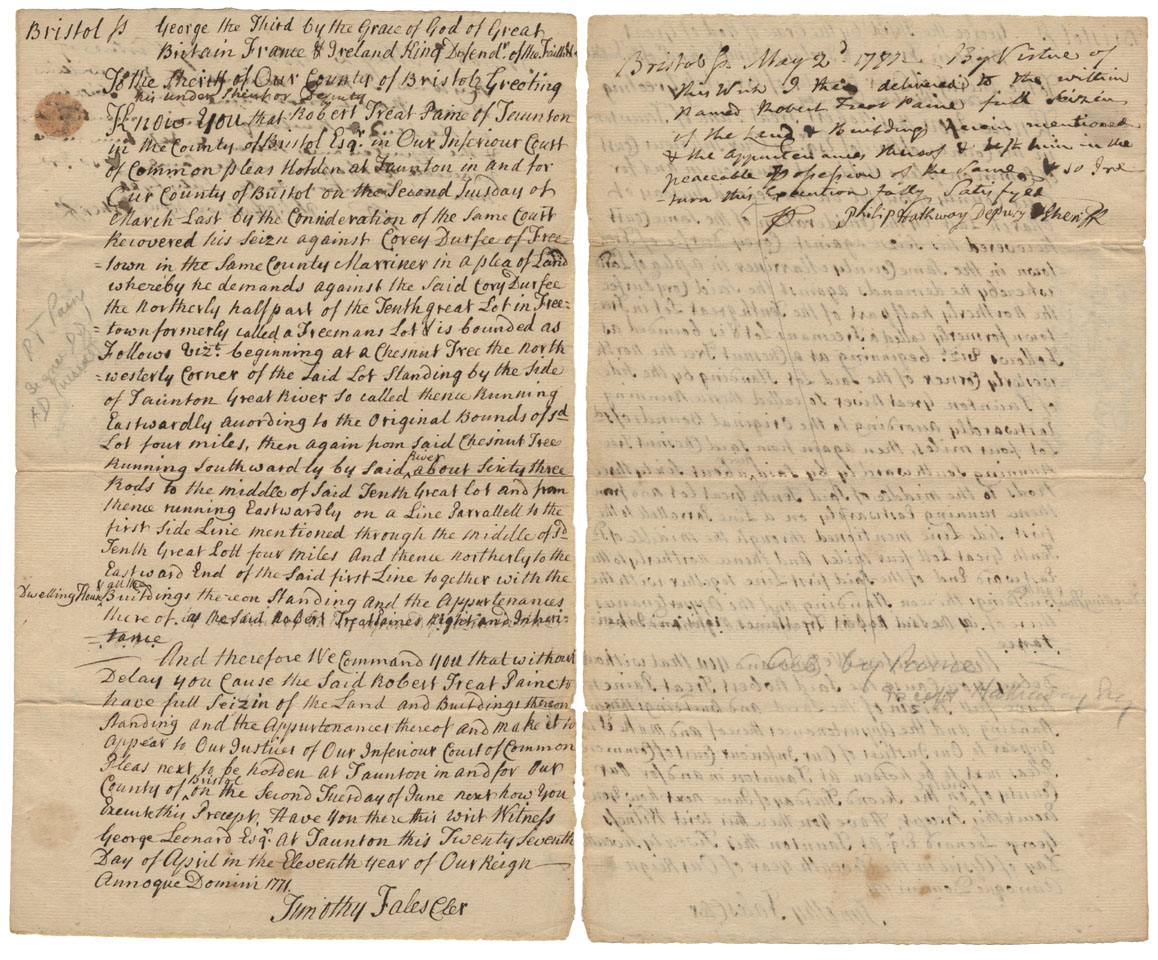 Bristol ss George the Third by the Grace of God of Great
Britain France & Ireland King Defendr. of the Faith &c
To the Sheriff of Our County of Bristol Greeting
his under Sherif or Deputy
Know You that Robert Treat Paine of Taunton
in the County of Bristol Esqr. in Our Inferiour Court
of Common pleas Holden at Taunton in and for
Our County of Bristol on the Second Tusday of
March Last by the Consideration of the Same Court
Recovered his Seizn against Corey Durfee of Free=
=town in the Same County Marriner in a plea of Land
whereby he demands against the Said Cory Durfee
the Northerly half part of the Tenth great Lot in Free=
=town formerly called a Freemans Lot & is bounded as
Follows vizt. beginning at a Chesnut Tree the North
=westerly Corner of the Said Lot Standing by the Side
of Taunton Great River so called thence Running
Eastwardly according to the Original Bounds of sd
Lot four miles, then again from Said Chesnut Tree
Running Southwardly by Said River about Sixty three
Rods to the middle of Said Tenth Great Lot and from
thence running Eastwardly on a Line Parrallell to the
first Side Line mentioned through the middle of sd
Tenth Great Lott four miles And thence northerly to the
Eastward End of the Said first Line together with the
Dwelling House & all the Buildings thereon Standing And the Appurtenances
there of. as the said Robert Treat Paines Right and Inheri=
=tance
And therefore We Command you that without
Delay you Cause the Said Robert Treat Paine to
have full Seizin of the Land and Buildings thereon
Standing and the Appurtenances thereof and make it to
Appear to Our Justices of Our Inferiour Court of Common
Pleas next to be holden at Taunton in and for Our
County of Bristol on the Second Tuesday of June next how You
Execute this Precept, Have you there this writ Witness
George Leonard Esqr. at Taunton this Twenty Seventh
Day of April in the Eleventh Year of Our Reign
Annoque Domini 1771.
Timothy Fales Cler
Bristol ss. May 2d 1771 By Virtue of
this Writ I then delivered to the within
Named Robert Treat Paine full Seizin
of the Land & Buildings herein mentioned
& the Appurtenances thereof & left him in the
peaceable Possession of the Same, & so I re
turn this Execution fully Satisfyed
Philip Hathway Deputy Sheriff